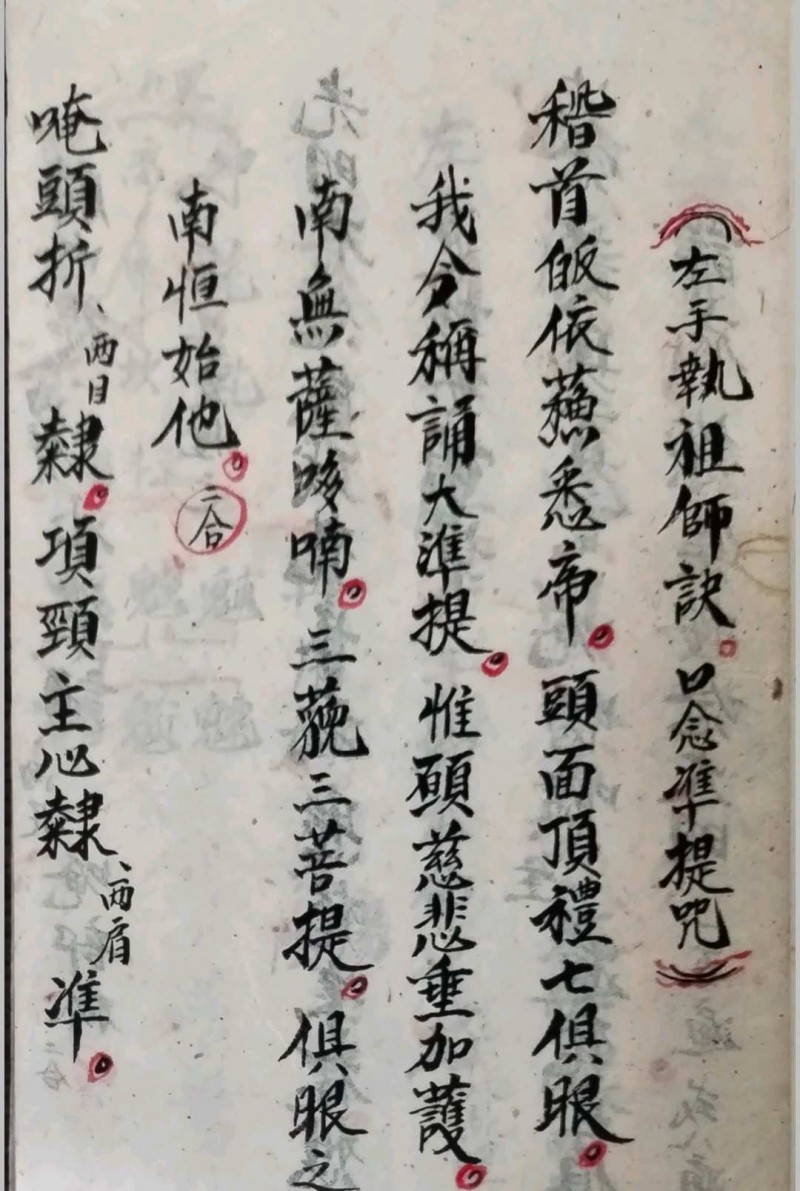 (左手執祖師訣。口念準提咒)
稽首皈依蘓悉帝。頭面頂禮七俱眼。
我今稱誦大準提。惟願慈悲垂加護。
南無薩哆喃。三藐三菩提。俱眼之
南恒始他。二合
唵頭折、两目隸。項頸主心隸、两眉準。